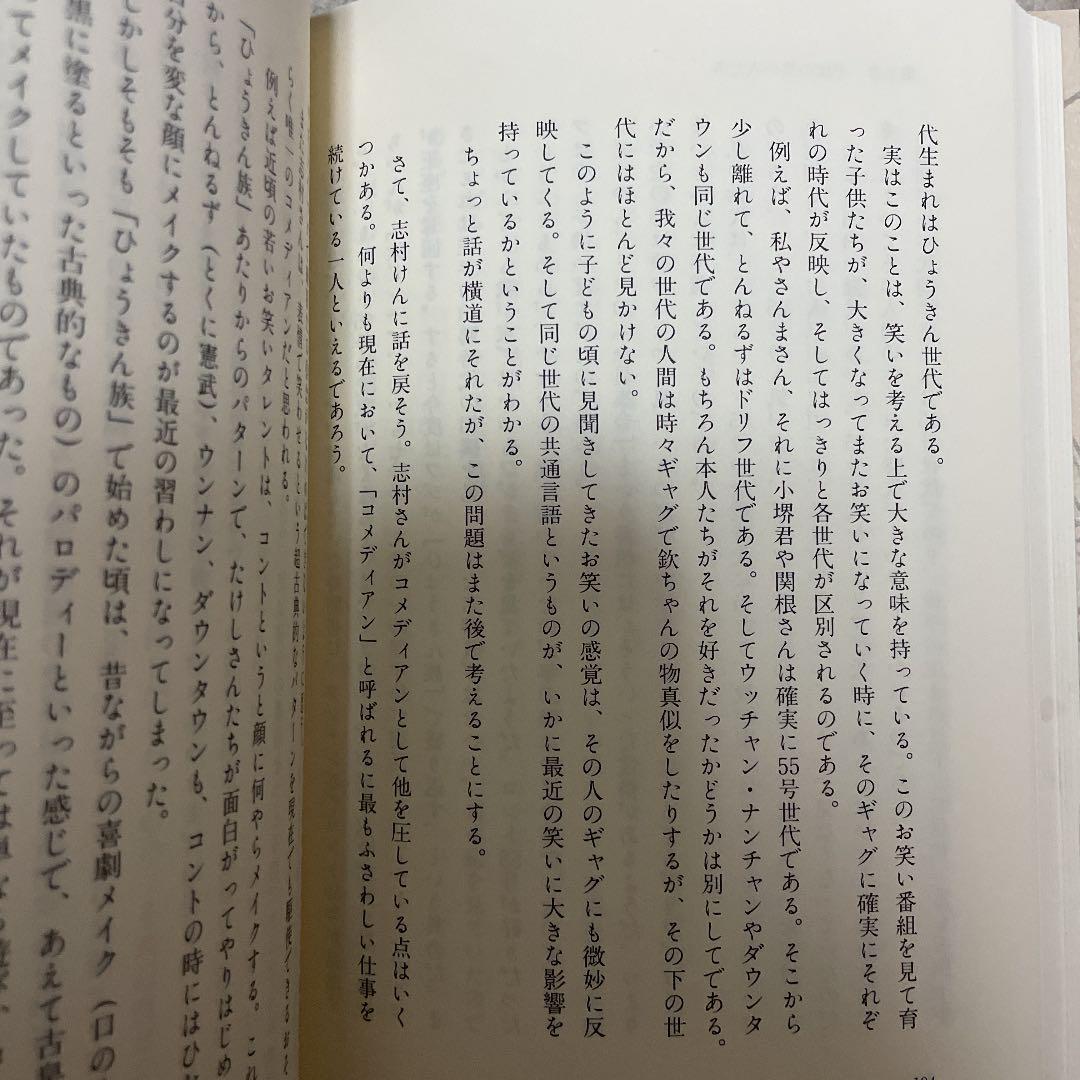 代生まれはひょうきん世代である。
実はこのことは、笑いを考える上で大きな意味を持っている。このお笑い番組を見て育
った子供たちが、大きくなってまたお笑いになっていく時に、そのギャグに確実にそれぞ
れの時代が反映し、そしてはっきりと各世代が区別されるのである。
例えば、私やさんまさん、それに小堺君や関根さんは確実に55号世代である。そこから
少し離れて、とんねるずはドリフ世代である。そしてウッチャン・ナンチャンやダウンタ
ウンも同じ世代である。もちろん本人たちがそれを好きだったかどうかは別にしてである。
だから、我々の世代の人間は時々ギャグで欽ちゃんの物真似をしたりするが、その下の世
代にはほとんど見かけない。
このように子どもの頃に見聞きしてきたお笑いの感覚は、その人のギャグにも微妙に反
映してくる。そして同じ世代の共通言語というものが、いかに最近の笑いに大きな影響を
持っているかということがわかる。
ちょっと話が横道にそれたが、この問題はまた後で考えることにする。
さて、志村けんに話を戻そう。志村さんがコメディアンとして他を圧している点はいく
つかある。何よりも現在において、「コメディアン」と呼ばれるに最もふさわしい仕事を
続けている一人といえるであろう。
表情で笑わせるという超古典的なパターンを現在でも
らく唯一のコメディアンだと思われる。
例えば近頃の若いお笑いタレントは、コントというと顔に何やらメイクする。これ
「ひょうきん族」あたりからのパターンで、たけしさんたちが面白がってやりはじめ
から、とんねるず（とくに憲武）、ウンナン、ダウンタウンも、コントの時にはひ
自分を変な顔にメイクするのが最近の習わしになってしまった。
しかしそもそも「ひょうきん族」で始めた頃は、昔ながらの喜劇メイク（口の
黒に塗るといった古典的なもの）のパロディーといった感じで、あえて古
てメイクしていたものであった。それが現在に至っては単なる